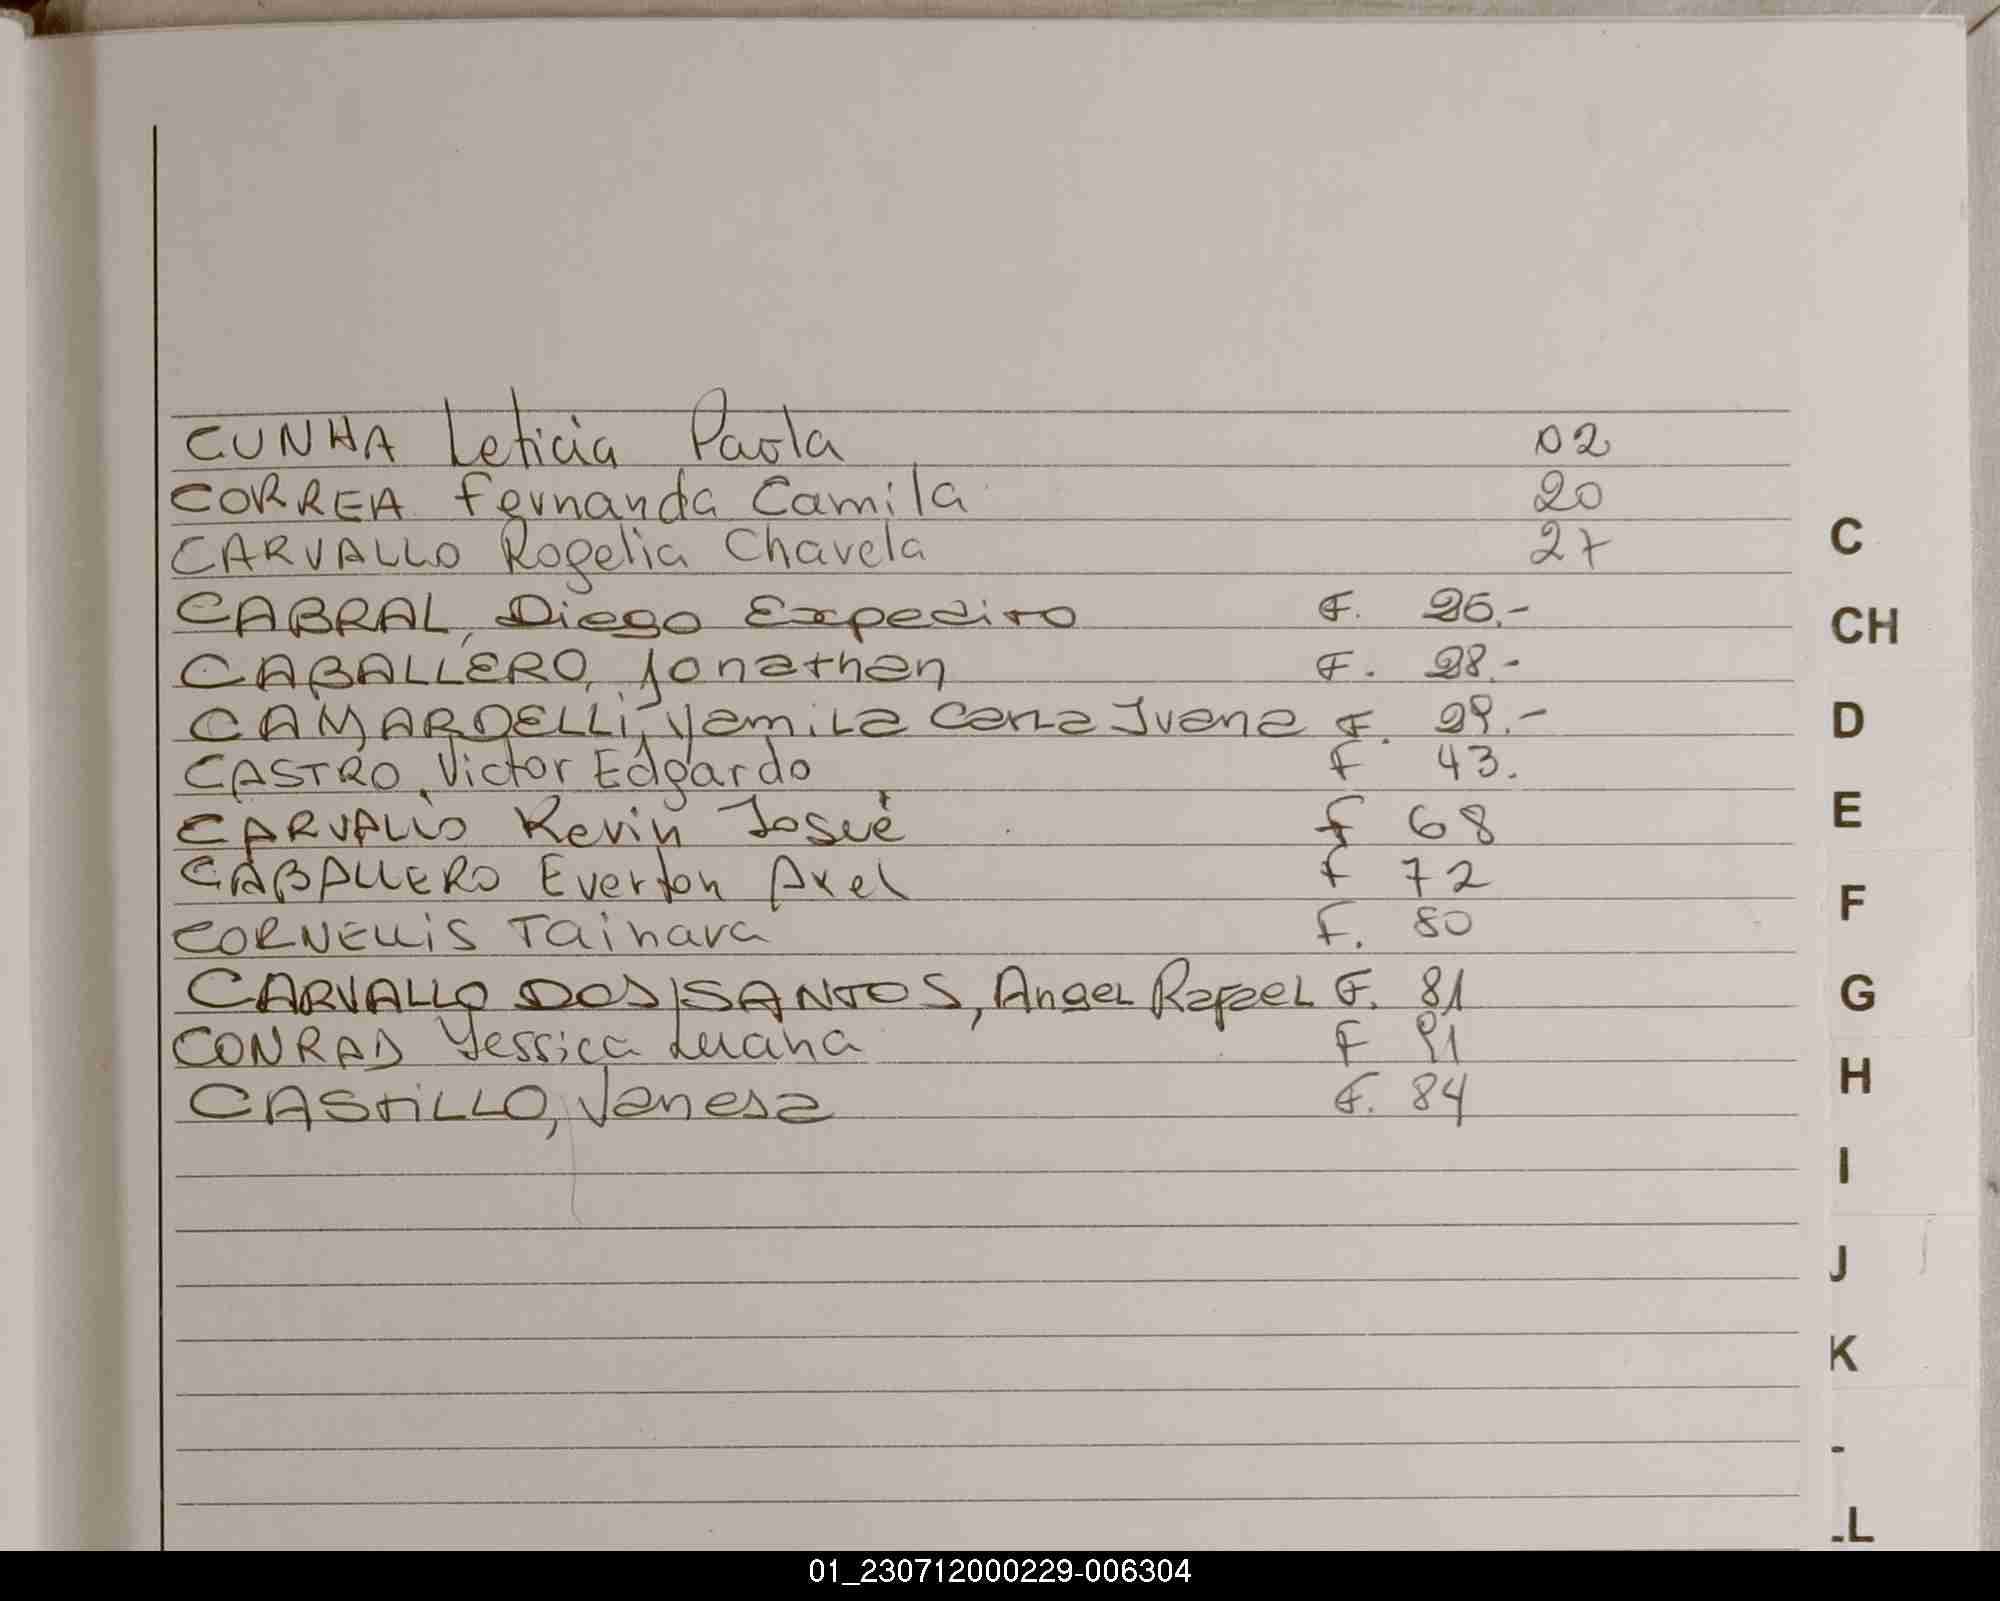 CUNHA Leticia Paola 02
CORREA Fernanda Camila 20
CARVALLO Rogelia Chavela 27
CABRAL, Diego Expedito F. 26.-
CABALLERO, Jonathan F. 28.-
CAMARDELLI, Yamila Carla Ivana F. 29.-
CASTRO, Victor Edgardo F 43.
CARVALLO Kevin Josué F 68
CABALLERO Everton Axel F 72
CORNELLIS Tainara F. 80
CARVALLO DOS SANTOS, Angel Rafael F. 81
CONRAD Yessica Luana F 91
CASTILLO, Vanesa F. 84
C
CH
D
E
F
G
H
I
J
K
-
.L
01_230712000229-006304